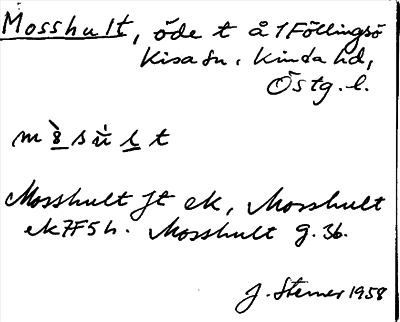 Mosshult, öde t å 1 Föllingsö
Kisa sn, Kinda hd,
Östg. l.
Mosshult Jt ek, Mosshult
ek 7F5h. Mosshult g. 36.
J. Sterner 1958